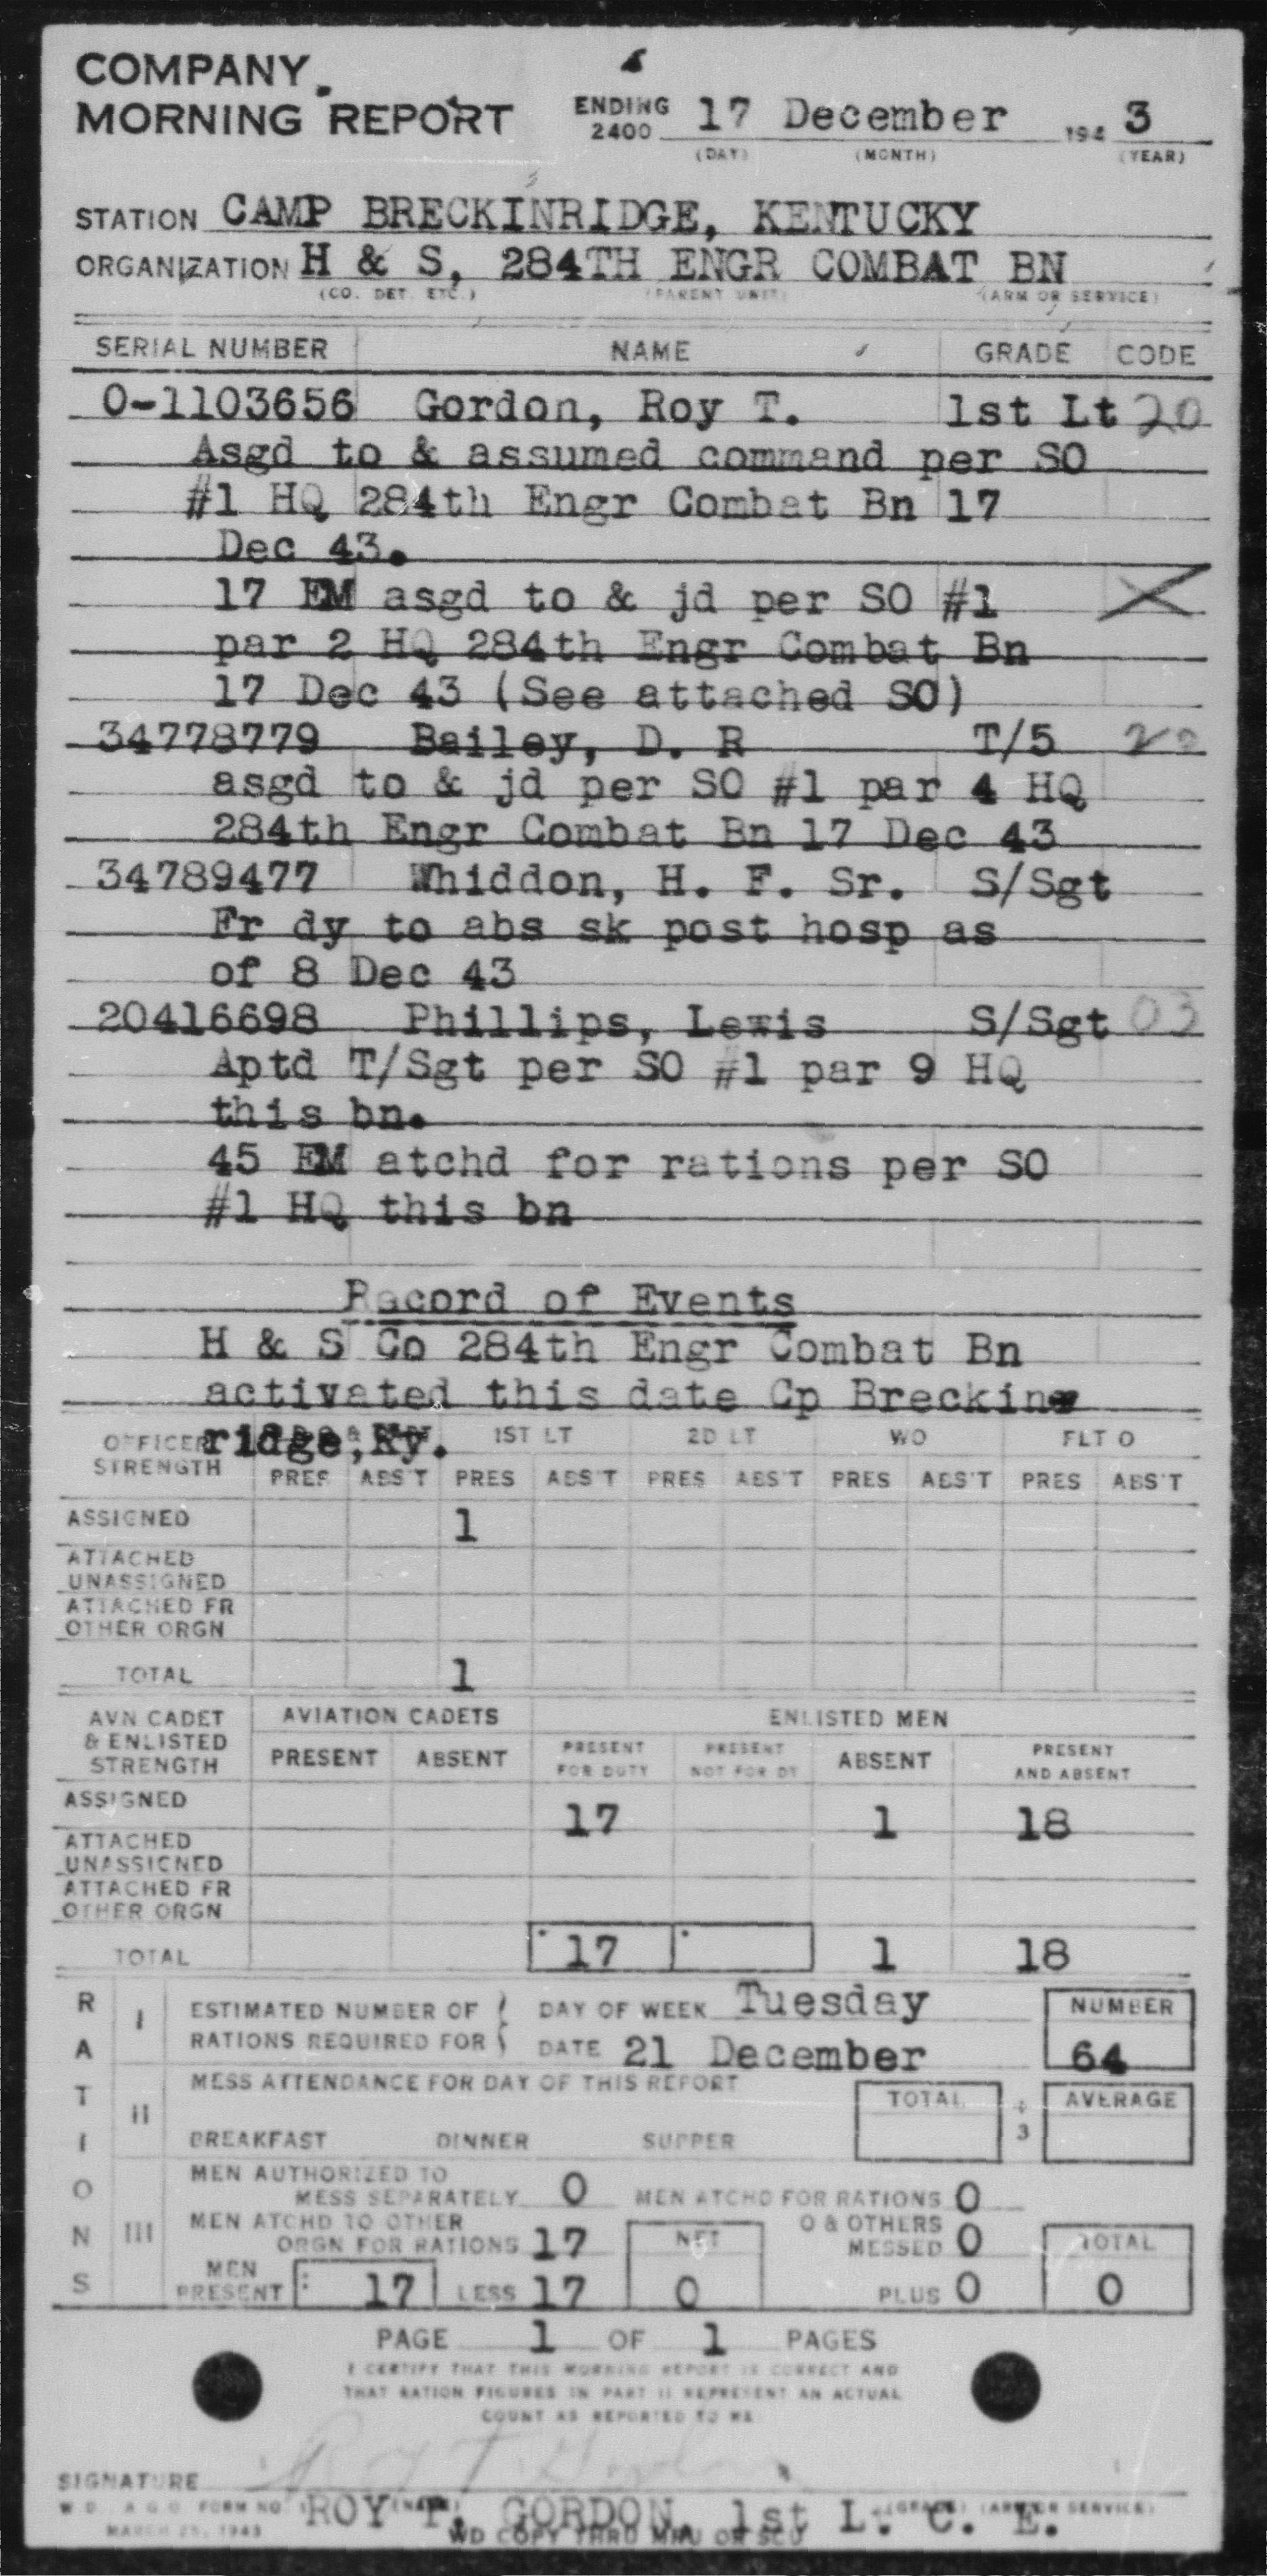 COMPANY
MORNING REPORT ENDING 2400 17 December 194 3
(DAY) (MONTH) (YEAR)
STATION CAMP BRECKINRIDGE, KENTUCKY
ORGANIZATION H & S, 284TH ENGR COMBAT BN
(CO. DET. ETC.) (PARENT UNIT) (ARM OR SERVICE)
SERIAL NUMBER NAME GRADE CODE
O-1103656 Gordon, Roy T. 1st Lt 20
Asgd to & assumed command per SO
#1 HQ 284th Engr Combat Bn 17
Dec 43.
17 EM asgd to & jd per SO #1
par 2 HQ 284th Engr Combat Bn
17 Dec 43 (See attached SO)
34778779 Bailey, D. R T/5
asgd to & jd per SO #1 par 4 HQ
284th Engr Combat Bn 17 Dec 43
34789477 Whiddon, H. F. Sr. S/Sgt
Fr dy to abs sk post hosp as
of 8 Dec 43
20416698 Phillips, Lewis S/Sgt 03
Aptd T/Sgt per SO #1 par 9 HQ
this bn.
45 EM atchd for rations per SO
#1 HQ this bn
Record of Events
H & S Co 284th Engr Combat Bn
activated this date Cp Breckin
ridge, Ky.
OFFICER STRENGTH 1ST LT 2D LT WO FLT O
PRES ABS'T PRES ABS'T PRES ABS'T PRES ABS'T PRES ABS'T
ASSIGNED 1
ATTACHED
UNASSIGNED
ATTACHED FR
OTHER ORGN
TOTAL 1
AVN CADET & ENLISTED STRENGTH AVIATION CADETS ENLISTED MEN
PRESENT ABSENT PRESENT FOR DUTY PRESENT NOT FOR DY ABSENT PRESENT AND ABSENT
ASSIGNED 17 1 18
ATTACHED
UNASSIGNED
ATTACHED FR
OTHER ORGN
TOTAL 17 1 18
RATIONS
I ESTIMATED NUMBER OF RATIONS REQUIRED FOR DAY OF WEEK Tuesday NUMBER
DATE 21 December 64
II MESS ATTENDANCE FOR DAY OF THIS REPORT TOTAL ÷ 3 AVERAGE
BREAKFAST DINNER SUPPER
III MEN AUTHORIZED TO
MESS SEPARATELY 0 MEN ATCHD FOR RATIONS 0
MEN ATCHD TO OTHER
ORGN FOR RATIONS 17 NET O & OTHERS MESSED 0 TOTAL
MEN PRESENT 17 LESS 17 0 PLUS 0 0
PAGE 1 OF 1 PAGES
I CERTIFY THAT THIS MORNING REPORT IS CORRECT AND
THAT RATION FIGURES IN PART II REPRESENT AN ACTUAL
COUNT AS REPORTED TO ME
SIGNATURE Roy T. Gordon
W. D., A. G. O. FORM NO. 1 (NAME) (GRADE) (ARM OR SERVICE)
MARCH 25, 1943
ROY T. GORDON, 1st L. C. E.
WD COPY THRU MRU OR SCU